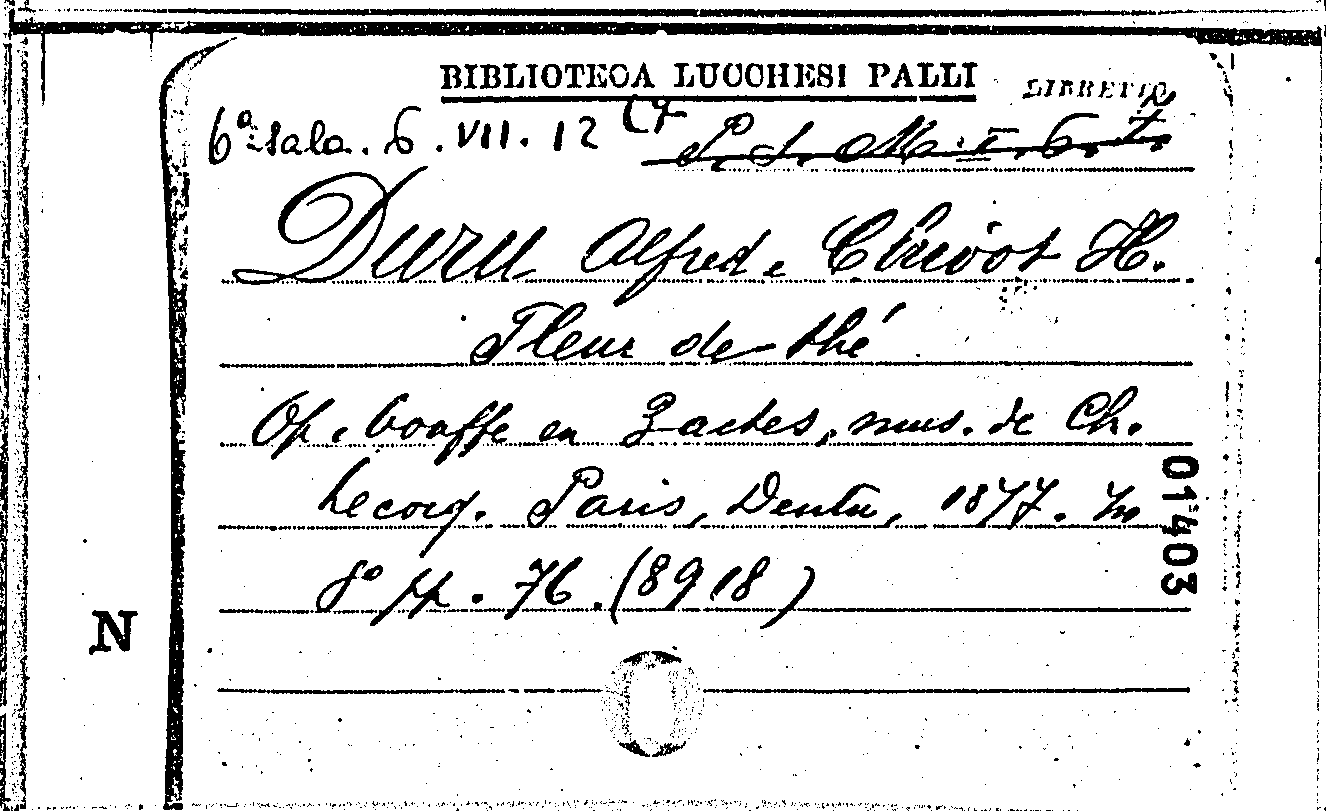 BIBLIOTECA LUCCHESI PALLI
LIBRETTO
6ª sala. 6. VII. 12 (7
P. S. M. I. 6. 7.
Duru Alfred e Chivot H.
Fleur de thé
Op. bouffe en 3 actes, mus. de Ch.
Lecoq. Paris, Dentu, 1877. In
8° pp. 76. (8918)
01403
N